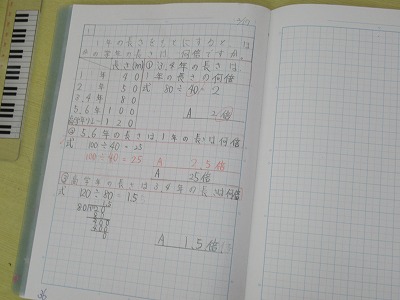 1
1年の長さをもとにすると、
の学年の長さは、何倍ですか。
長さ(m) ① 3,4年の長さは、
1年 40 1年の長さの何倍
2年 50 式 80÷40=2
3,4年 80
5,6年 100 A 2倍
120
② 5,6年の長さは、1年の長さは何倍
式 100÷40=25
100÷40=25 A 2.5倍
A 25倍
学年の長さは3,4年の長さは何倍
式 120÷80=1.5
A 1.5倍